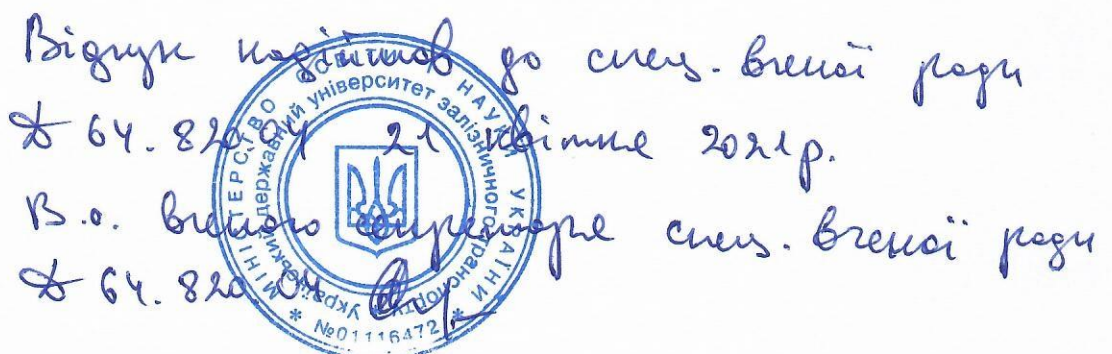 Відгук надійшов до спец. вченої ради
Д 64.820.04 21 квітня 2021р.
В.о. вченого секретаря спец. вченої ради
Д 64.820.04
МІНІСТЕРСТВО ОСВІТИ І НАУКИ УКРАЇНИ
Український державний університет залізничного транспорту
* №01116472 *